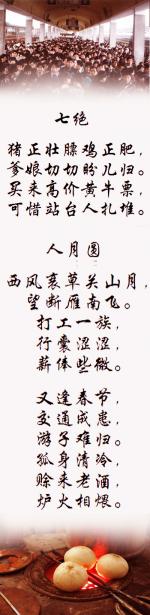 七绝
猪正壮膘鸡正肥，
爹娘切切盼儿归。
买来高价黄牛票，
可惜站台人扎堆。
人月圆
西风衰草关山月，
望断雁南飞。
打工一族，
行囊涩涩，
薪俸些微。
又逢春节，
交通成患，
游子难归。
孤身清冷，
赊来老酒，
炉火相煨。